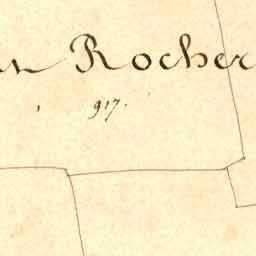 Rocher
917.